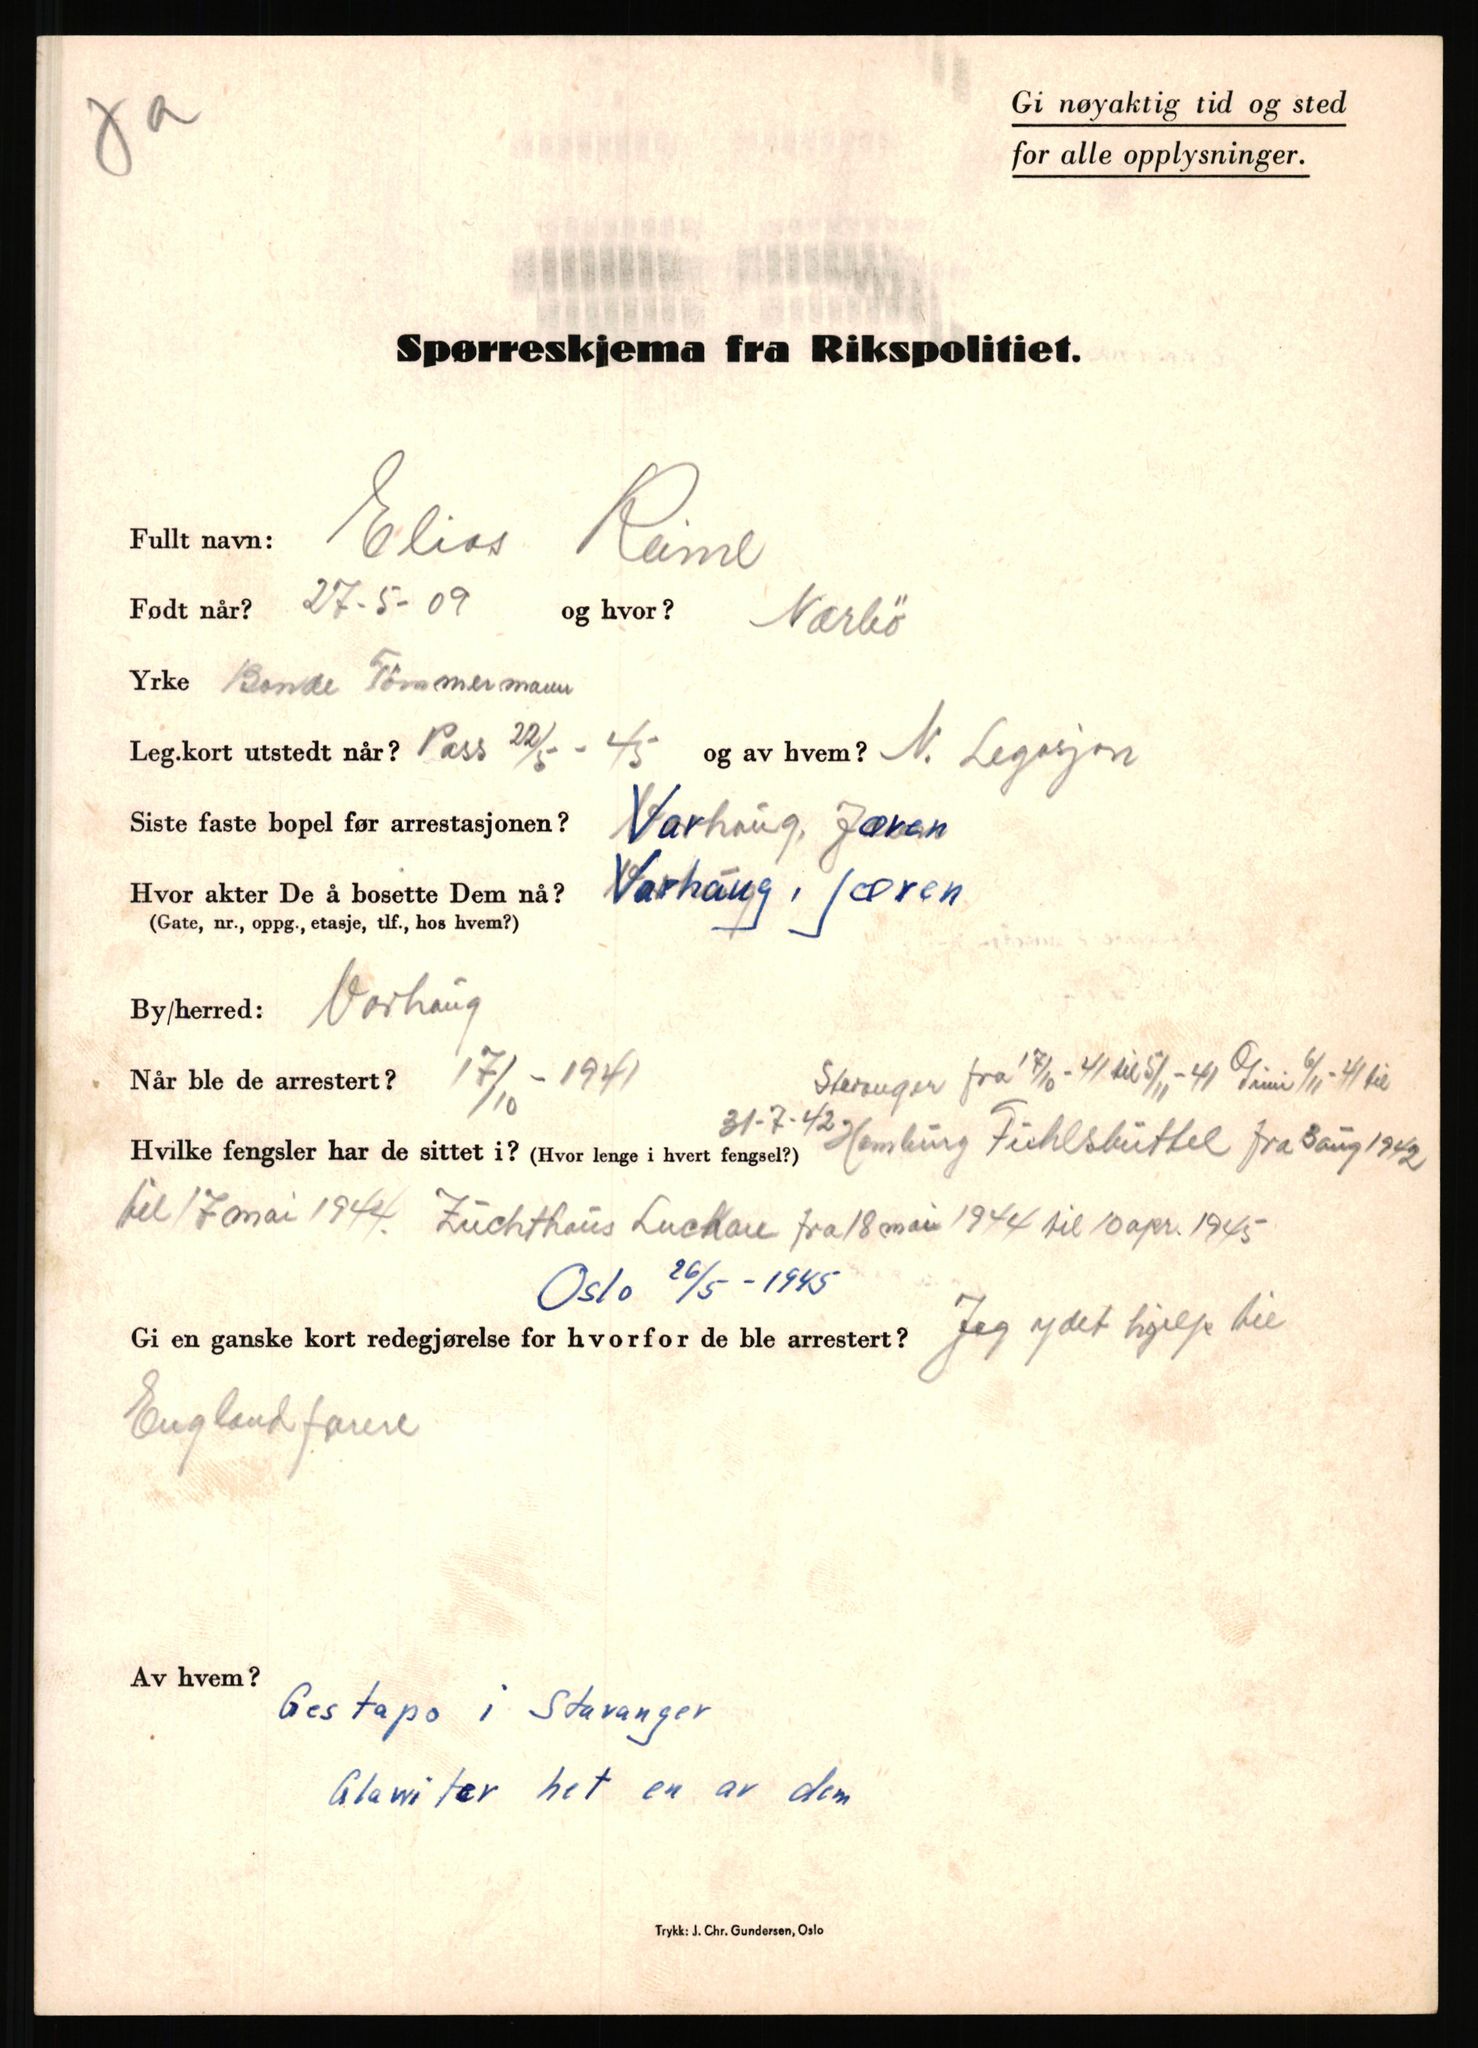 ja
Gi nøyaktig tid og sted
for alle opplysninger.
Spørreskjema fra Rikspolitiet.
Fullt navn: Elias Reime
Født når? 27-5-09 og hvor? Nærbö
Yrke Bonde Tömmermann
Leg.kort utstedt når? Pass 22/5 - 45 og av hvem? N. Legasjon
Siste faste bopel før arrestasjonen? Varhaug, Jæren
Hvor akter De å bosette Dem nå? Varhaug, Jæren
(Gate, nr., oppg., etasje, tlf., hos hvem?)
By/herred: Varhaug
Når ble de arrestert? 17/10 - 1941 Stavanger fra 17/10 - 41 til 5/11 - 41 6/11 - 41 til
31-7-42 Hamburg Fuhlsbüttel fra 3 aug 1942
Hvilke fengsler har de sittet i? (Hvor lenge i hvert fengsel?)
til 17 mai 1944. Zuchthaus Luckau fra 18 mai 1944 til 10 apr. 1945
Oslo 26/5 - 1945
Gi en ganske kort redegjørelse for hvorfor de ble arrestert? Jeg ydet hjelp til
Englandfarere
Av hvem?
Gestapo i Stavanger
Glawiter het en av dem
Trykk: J. Chr. Gundersen, Oslo